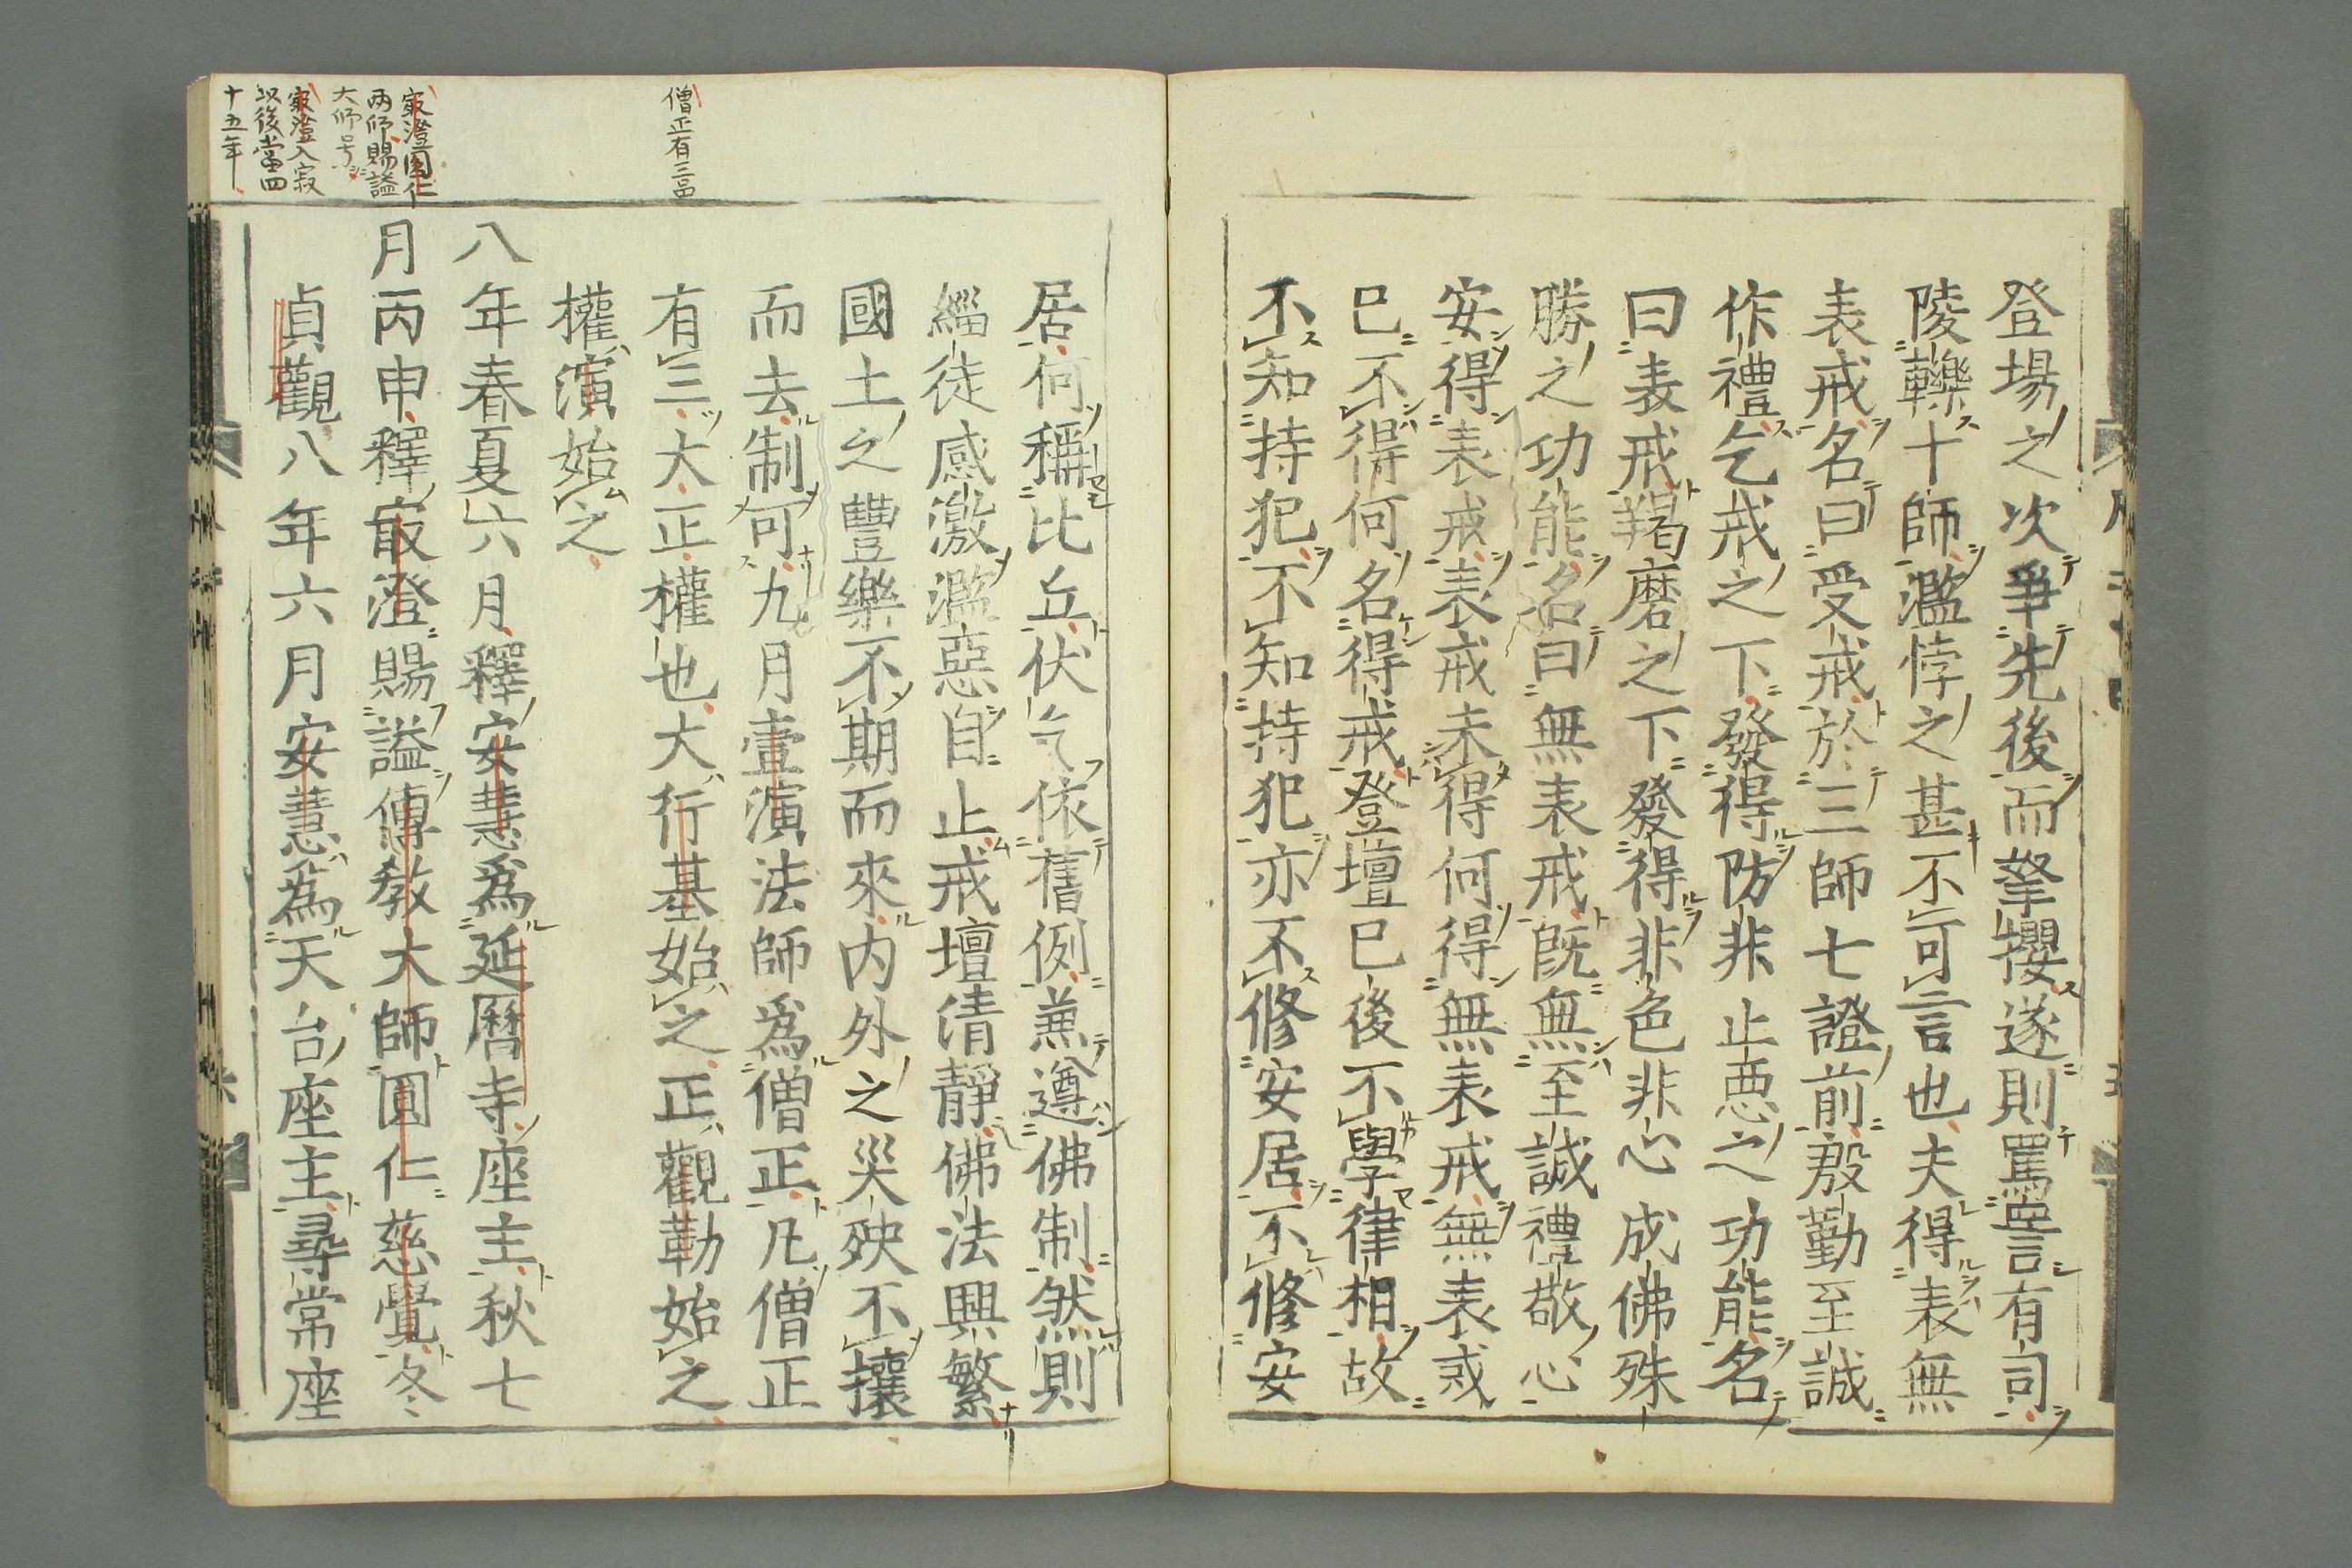 登場之次爭先後而拏攖遂則罵詈有司
陵轢十師濫悖之甚不可言也夫得表無
表戒名曰受戒於三師七證前慇勤至誠
作禮乞戒之下發得防非止悪之功能名
曰表戒羯磨之下發得非色非心成佛殊
勝之功能名曰無表戒既無至誠禮敬心
安得表戒表戒未得何得無表戒無表戒
巳不得何名得戒登壇巳後不學律相故
不知持犯不知持犯亦不修安居不修安
居何稱比丘伏乞依舊例兼遵佛制然則
緇徒感激濫惡自止戒壇清靜佛法興繁
國土之豐樂不期而來内外之災殃不攘
而去制可九月壹演法師爲僧正凡僧正
有三大正權也大行基始之正觀勒始之
權演始之
八年春夏六月釋安慧爲延曆寺座主秋七
月丙申釋㝡澄賜謚傳敎大師圓仁慈覺冬
貞觀八年六月安慧爲天台座主尋常座
僧正有三品
㝡澄圓仁
两师賜謚
大师号
㝡澄入寂
以後當四
十五年